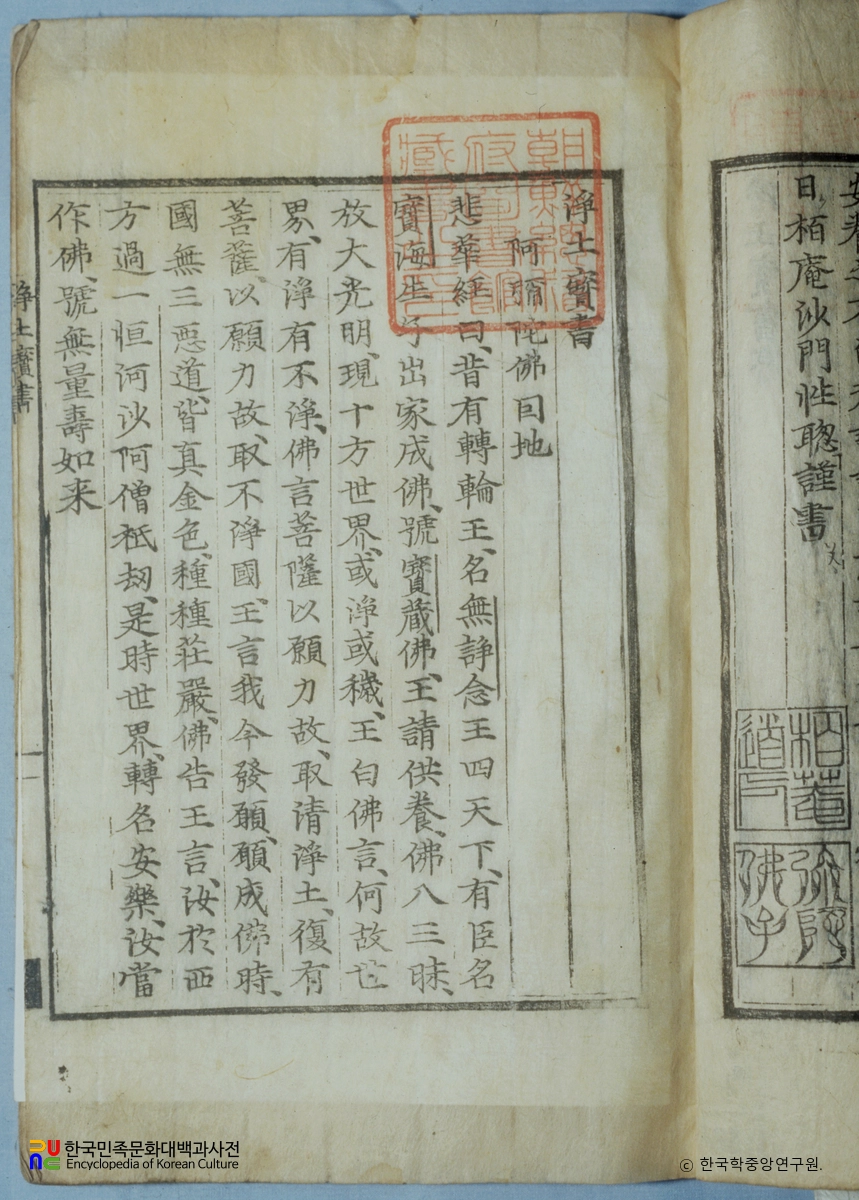 日栢庵沙門性聰謹書
栢菴
道人
弥陀
佛子
淨土寶書
阿彌陀佛囙地
悲華經曰、昔有轉輪王、名無諍念王四天下、有臣名
寶海生子出家成佛、號寶藏佛、王請供養、佛入三昧、
放大光明、現十方世界、或淨或穢、王白佛言、何故世
界、有淨有不淨、佛言菩薩以願力故、取清淨土、復有
菩薩、以願力故、取不淨國、王言我今發願、願成佛時、
國無三惡道、皆真金色、種種莊嚴、佛告王言、汝於西
方過一恒河沙阿僧祇劫、是時世界、轉名安樂、汝當
作佛、號無量壽如来
淨土寶書
一
朝鮮總督
府圖書館
藏書之印
한국민족문화대백과사전
Encyclopedia of Korean Culture
© 한국학중앙연구원.